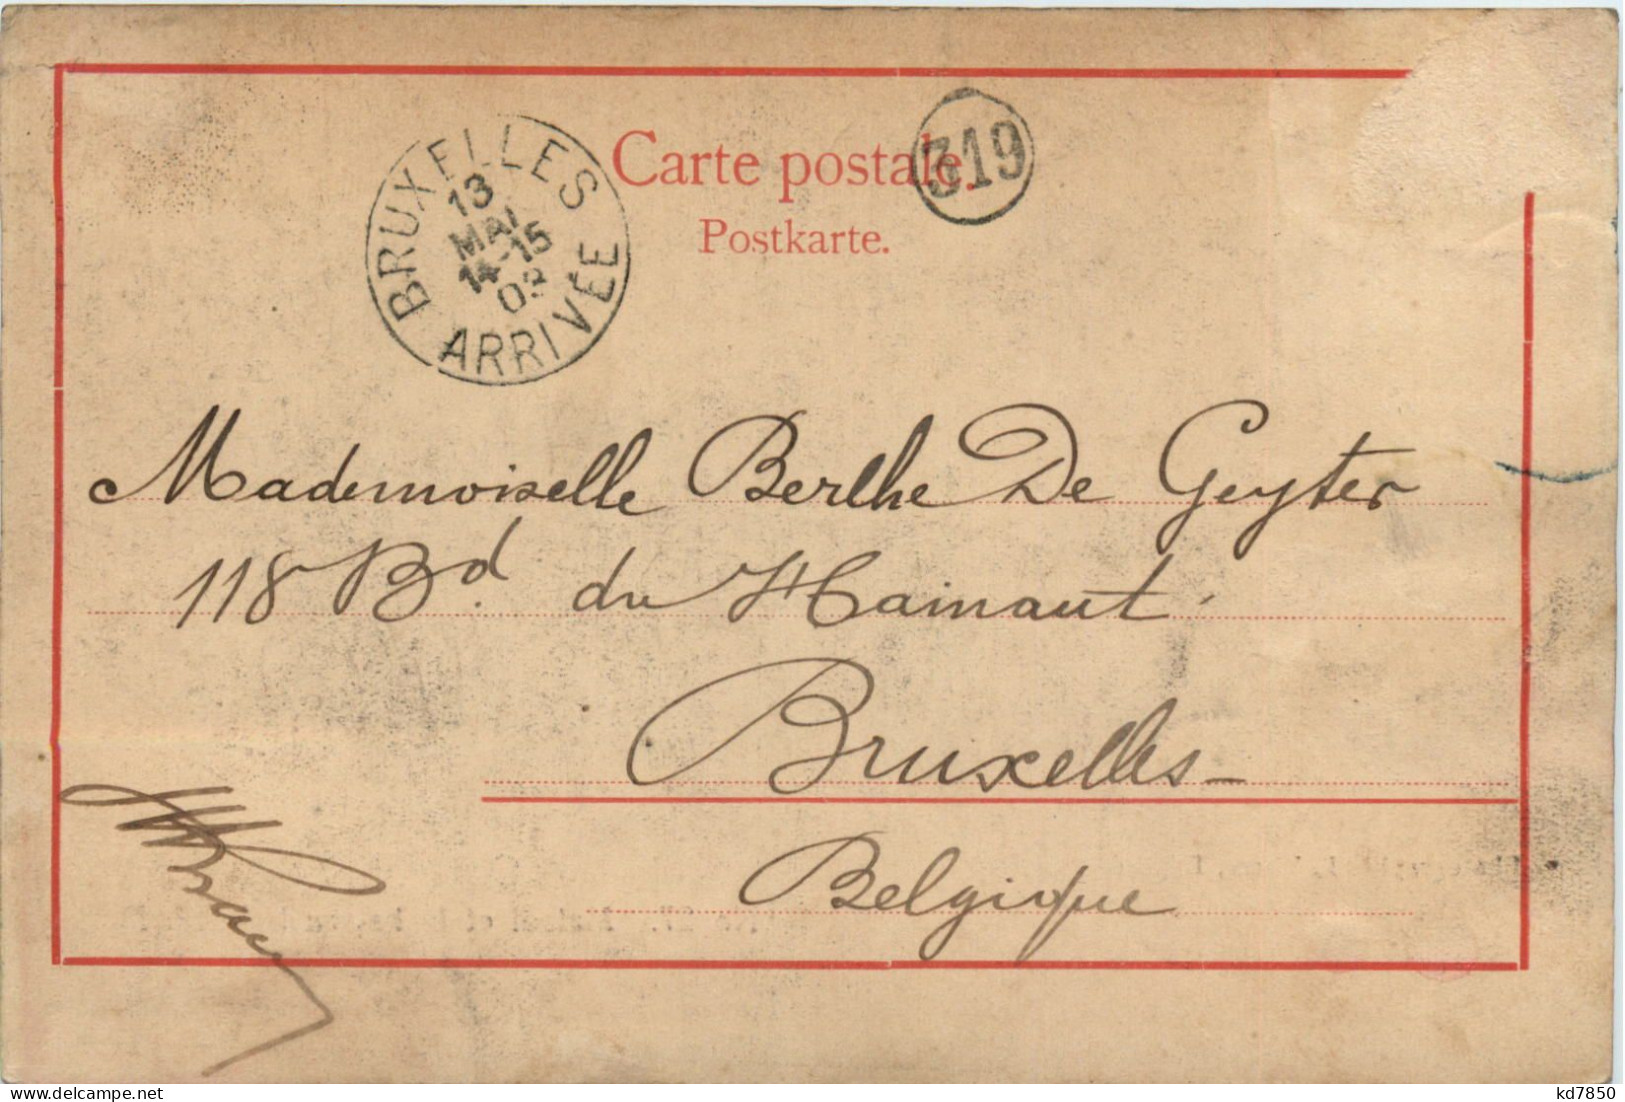 Carte postale.
319
Postkarte.
BRUXELLES
13
MAI
14-15
03
ARRIVÉE
Mademoiselle Berthe De Geyter
118 Bd. du Hainaut.
Bruxelles
Belgique
delcampe.net
kd7850